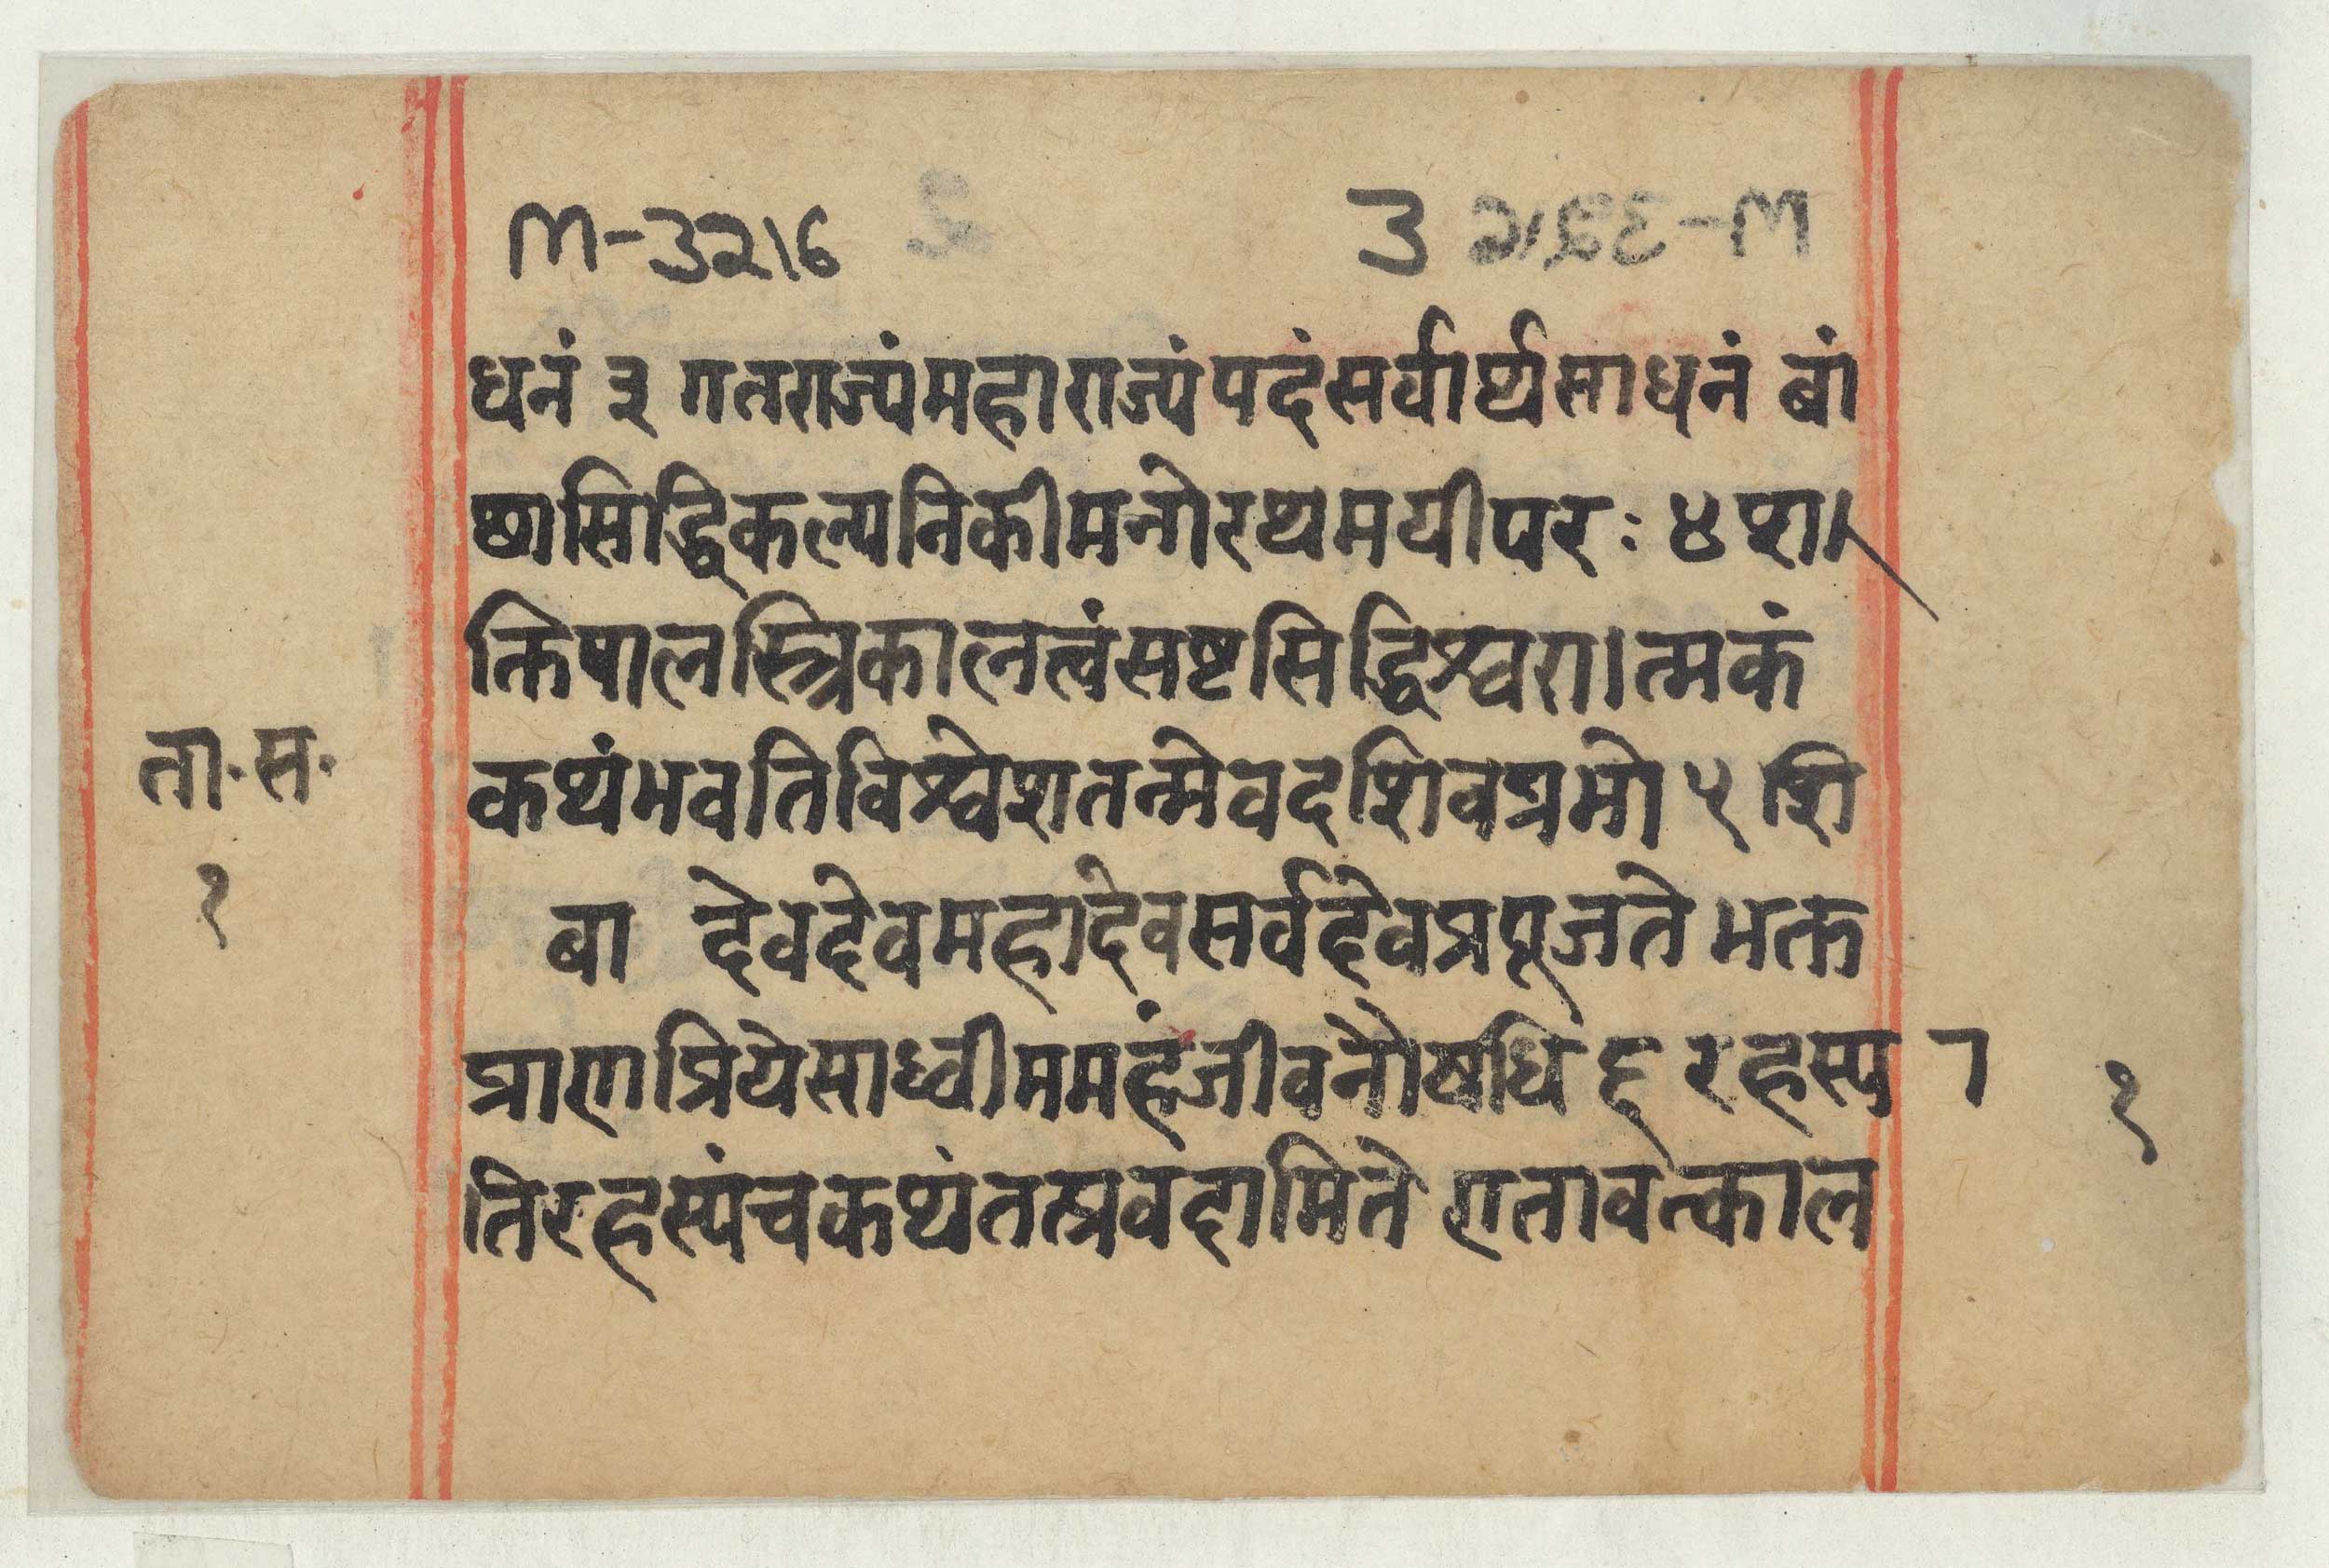 M-3216 3
धनं ३ गतराज्यंमहाराज्यंपदंसर्वार्थसाधनं बां
छासिद्धिकल्पनिकीमनोरथमयीपरः ४ शा
क्तिपालस्त्रिकालत्वंसष्टसिद्धिश्वरात्मकं
ता॰स॰ कथंभवतिविश्वेशतन्मेवदशिवप्रभो ५ शि
१ बा देवदेवमहादेवसर्वदेवप्रपूजते भक्त
प्राणप्रियेसाध्वीममहंजीवनौषधि ६ रहस्य १
तिरहस्यंचकथंतत्प्रवदामिते एतावत्काल